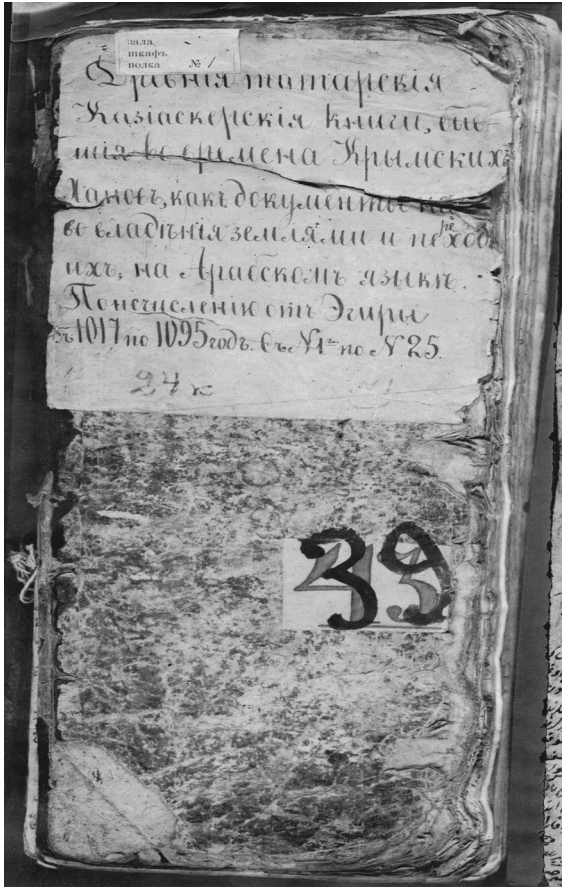 зала,
шкафъ
полка № 1
Древнія татарскія
Казіаскерскія книги, быв-
шія во времена Крымскихъ
Хановъ, какъ документы на
во владѣнія землями и переход
ихъ, на Арабскомъ языкѣ.
По исчисленію отъ Эгиры
съ 1017 по 1095 годъ. Съ №1го по № 25.
24 к
39
43